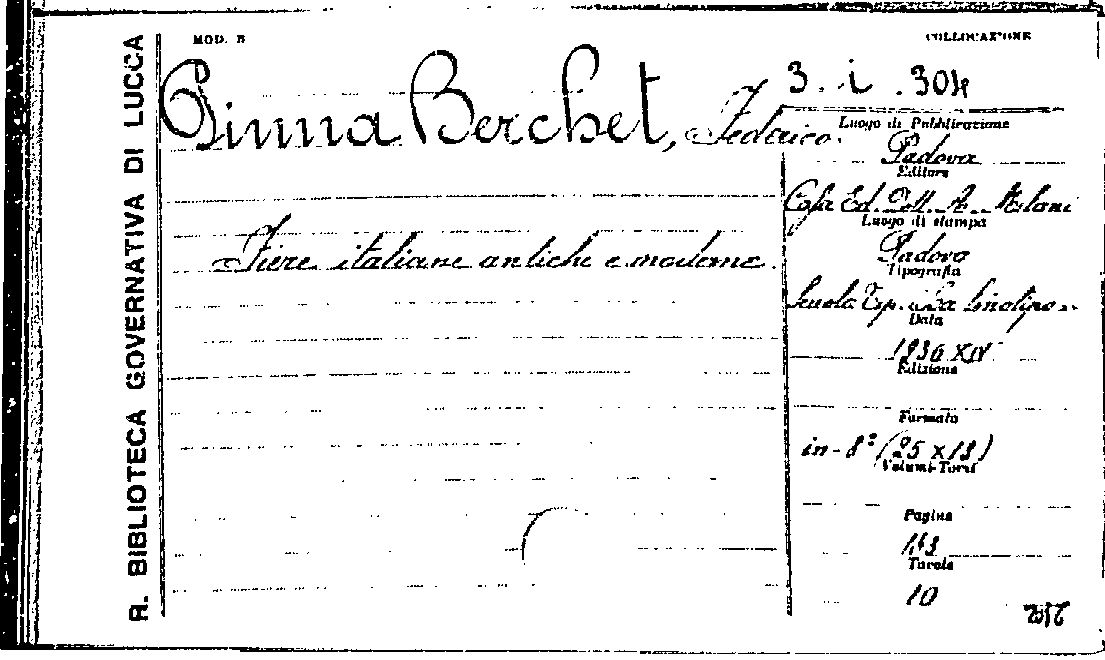 R. BIBLIOTECA GOVERNATIVA DI LUCCA
MOD. B
COLLOCAZIONE
3. i. 304
Pinna Berchet, Federico.
Fiere italiane antiche e moderne.
Luogo di Pubblicazione
Padova
Editore
Casa Ed. Dott. A. Milani
Luogo di stampa
Padova
Tipografia
Scuola Tip.
Data
1936 XIV
Edizione
Formato
in-8° (25 x 18)
Volumi-Tomi
Pagine
Tavole
10